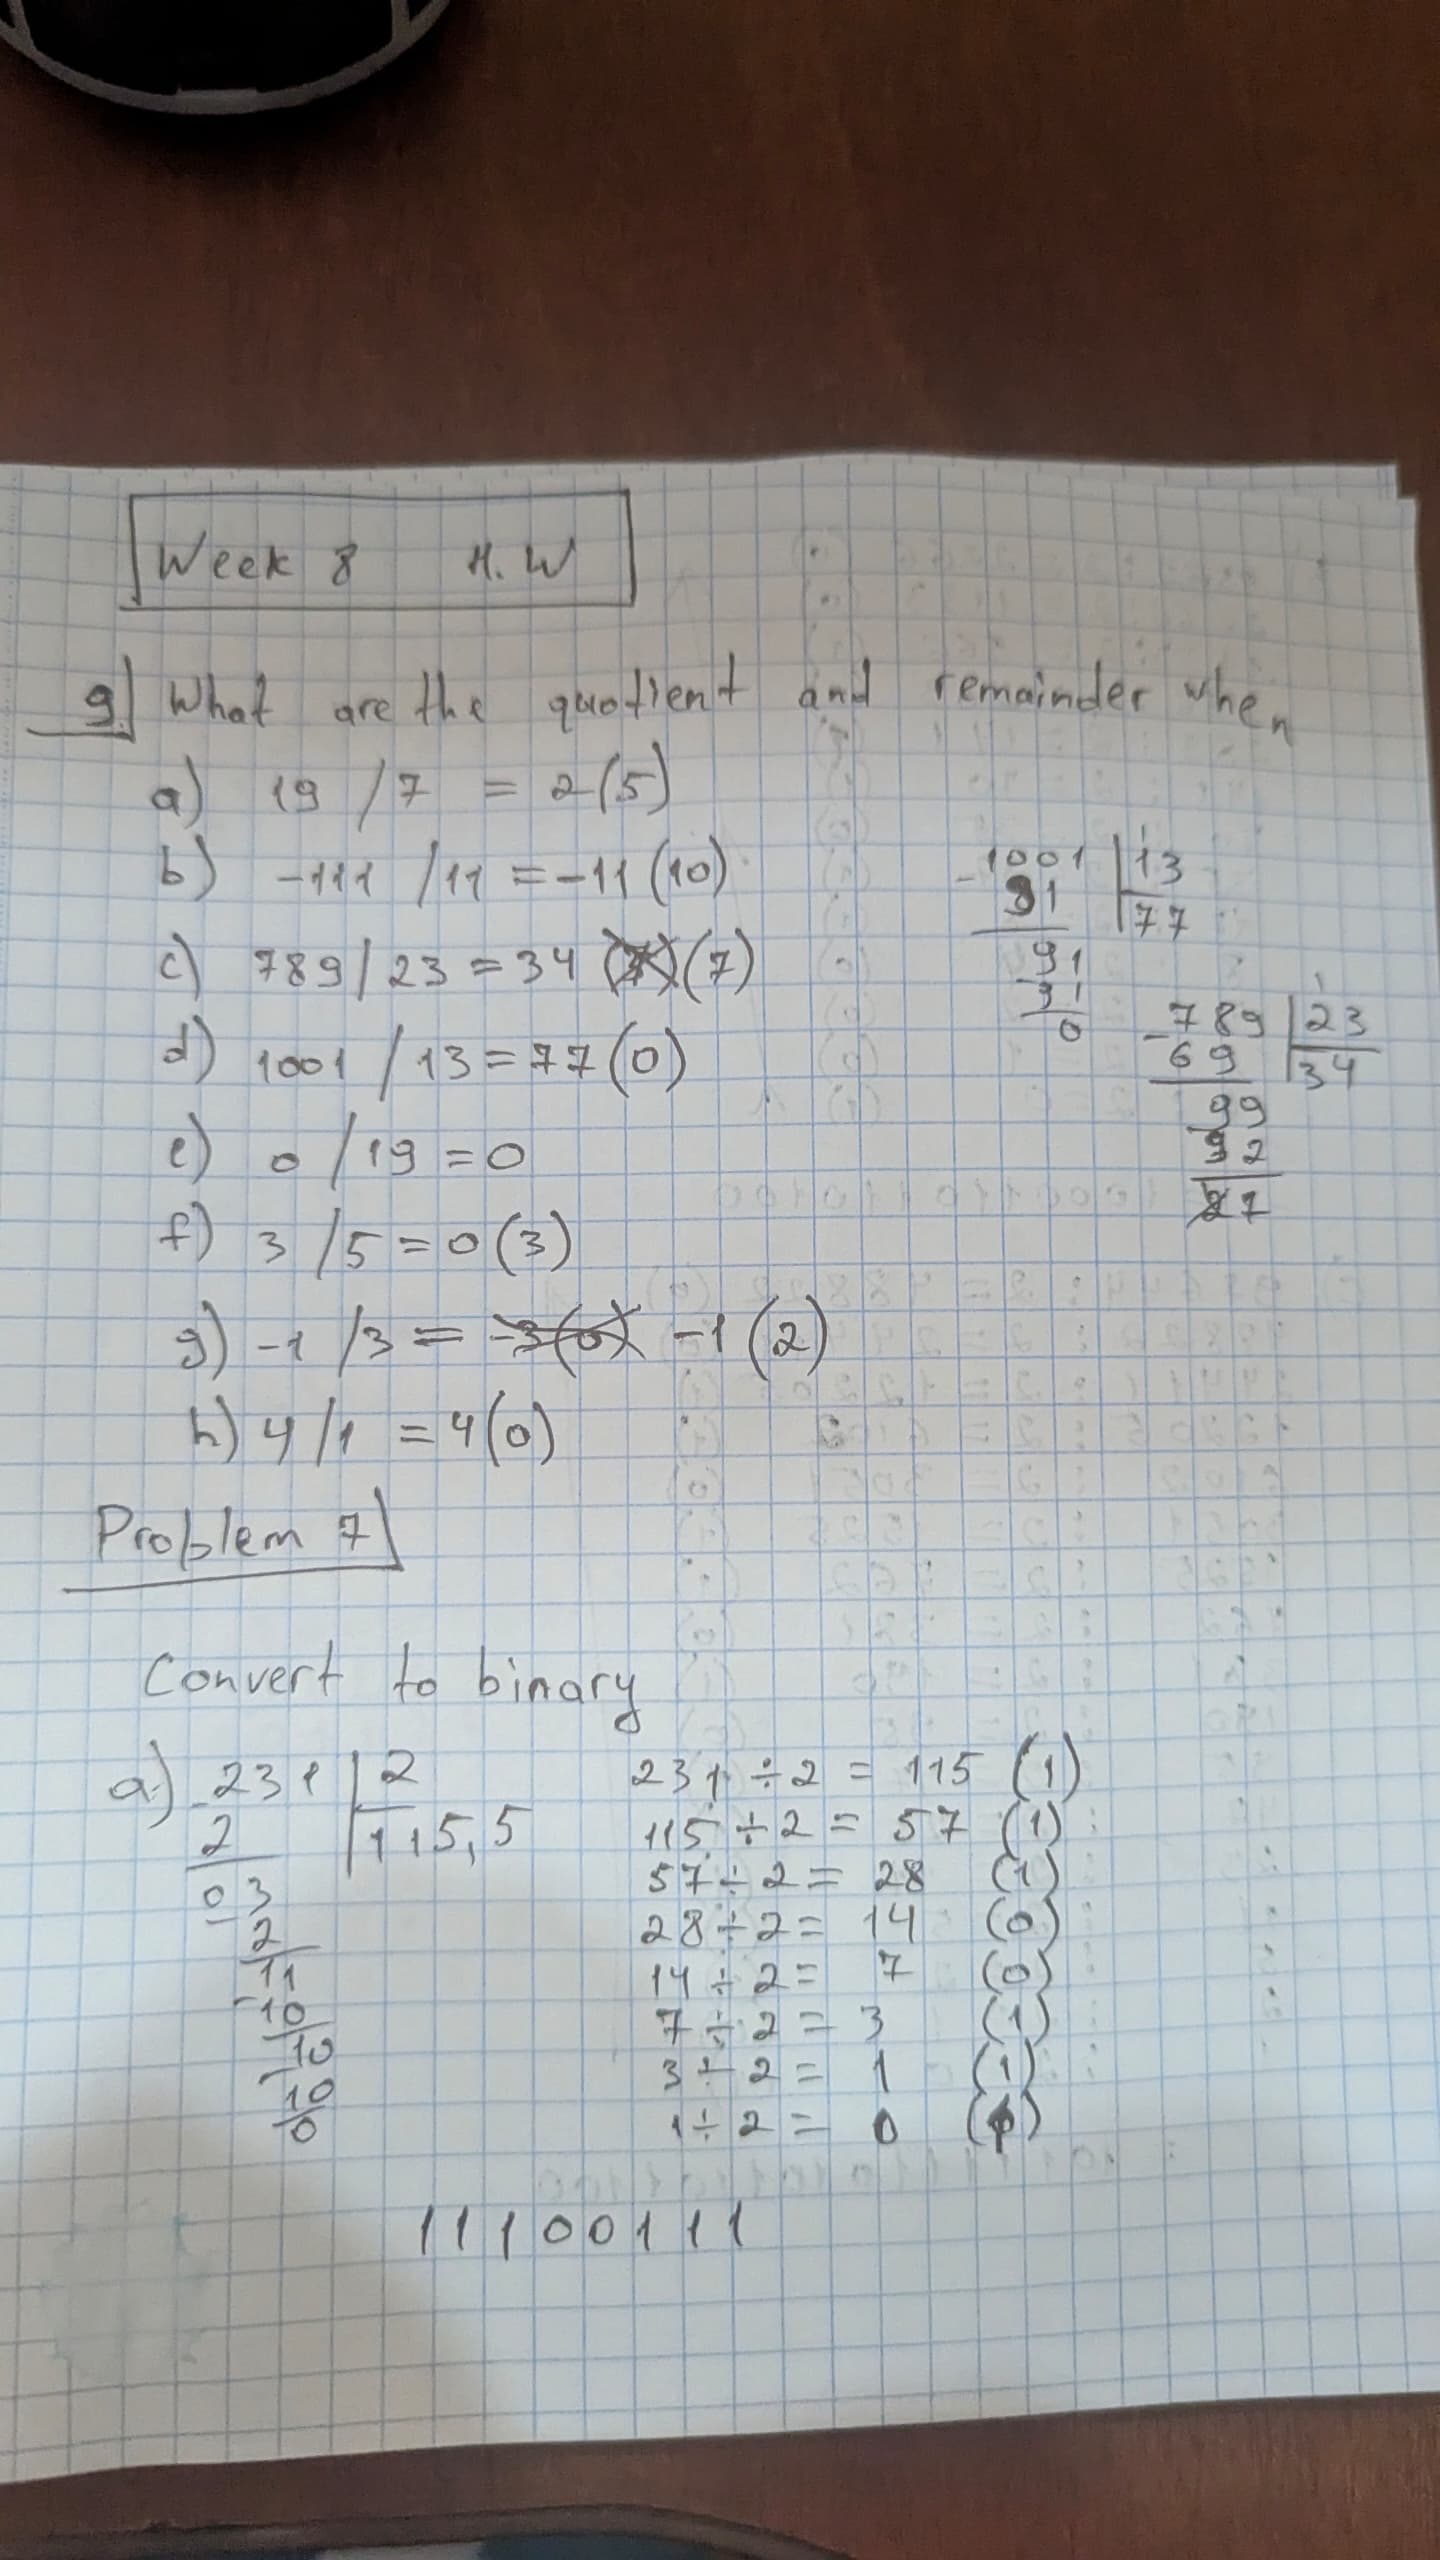 Week 8 H.W
9. What are the quotient and remainder when
a) 19 / 7 = 2(5)
b) -111 / 11 = -11 (10)
c) 789 / 23 = 34 (7)
d) 1001 / 13 = 77 (0)
e) 0 / 19 = 0
f) 3 / 5 = 0 (3)
g) -1 / 3 = -3(0) -1 (2)
h) 4 / 1 = 4 (0)
1
-1001 | 13
91
77
91
91
0
1
-789 | 23
69
34
99
92
27
Problem 7
Convert to binary
a) -231 | 2
2
115,5
03
-2
11
-10
10
-10
0
231 ÷ 2 = 115 (1)
115 ÷ 2 = 57 (1)
57 ÷ 2 = 28 (1)
28 ÷ 2 = 14 (0)
14 ÷ 2 = 7 (0)
7 ÷ 2 = 3 (1)
3 ÷ 2 = 1 (1)
1 ÷ 2 = 0 (1)
11100111